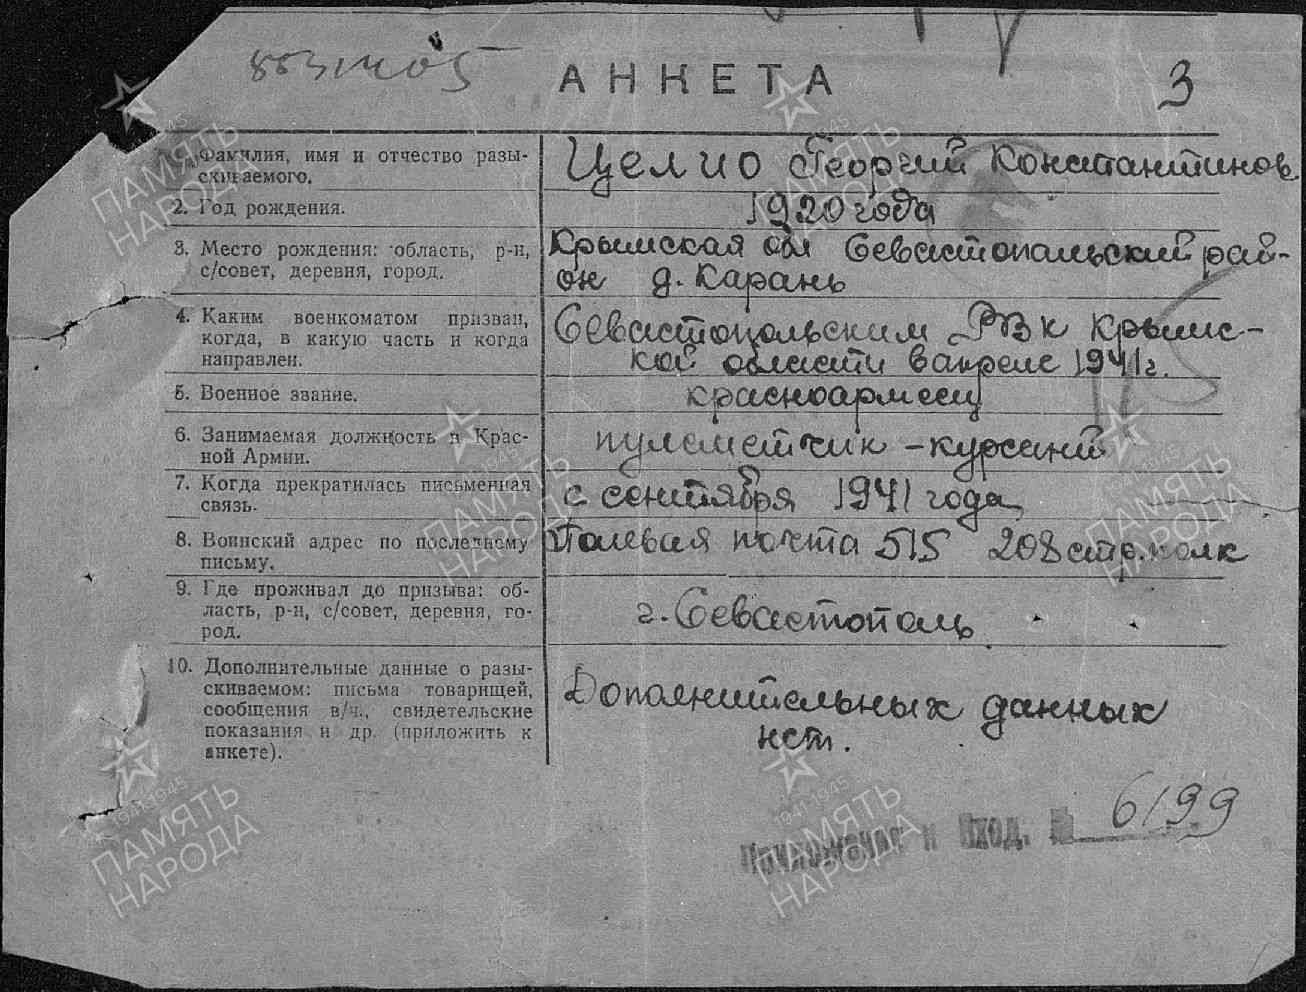 АНКЕТА
3
Фамилия, имя и отчество разы-
скиваемого.
Целио Георгий Константинов.
2. Год рождения.
1920 года
3. Место рождения: область, р-н,
с/совет, деревня, город.
Крымская обл Севастопальский рай-
он д. Карань
4. Каким военкоматом призван,
когда, в какую часть и когда
направлен.
Севастопольским РВк Крымс-
кой области в апреле 1941 г.
5. Военное звание.
красноармеец
6. Занимаемая должность в Крас-
ной Армии.
пулеметчик - курсант
7. Когда прекратилась письменная
связь.
с сентября 1941 года
8. Воинский адрес по последнему
письму.
Полевая почта 515 208 стр. полк
9. Где проживал до призыва: об-
ласть, р-н, с/совет, деревня, го-
род.
г. Севастополь
10. Дополнительные данные о разы-
скиваемом: письма товарищей,
сообщения в/ч., свидетельские
показания и др. (приложить к
анкете).
Дополнительных данных
нет.
Приложение к Вход. № 6199
ПАМЯТЬ
НАРОДА
1941-1945
ПАМЯТЬ
НАРОДА
ПАМЯТЬ
НАРОДА
ПАМЯТЬ
НАРОДА
1941-1945
ПАМЯТЬ
НАРОДА
1941-1945
ПАМЯТЬ
НАРОДА